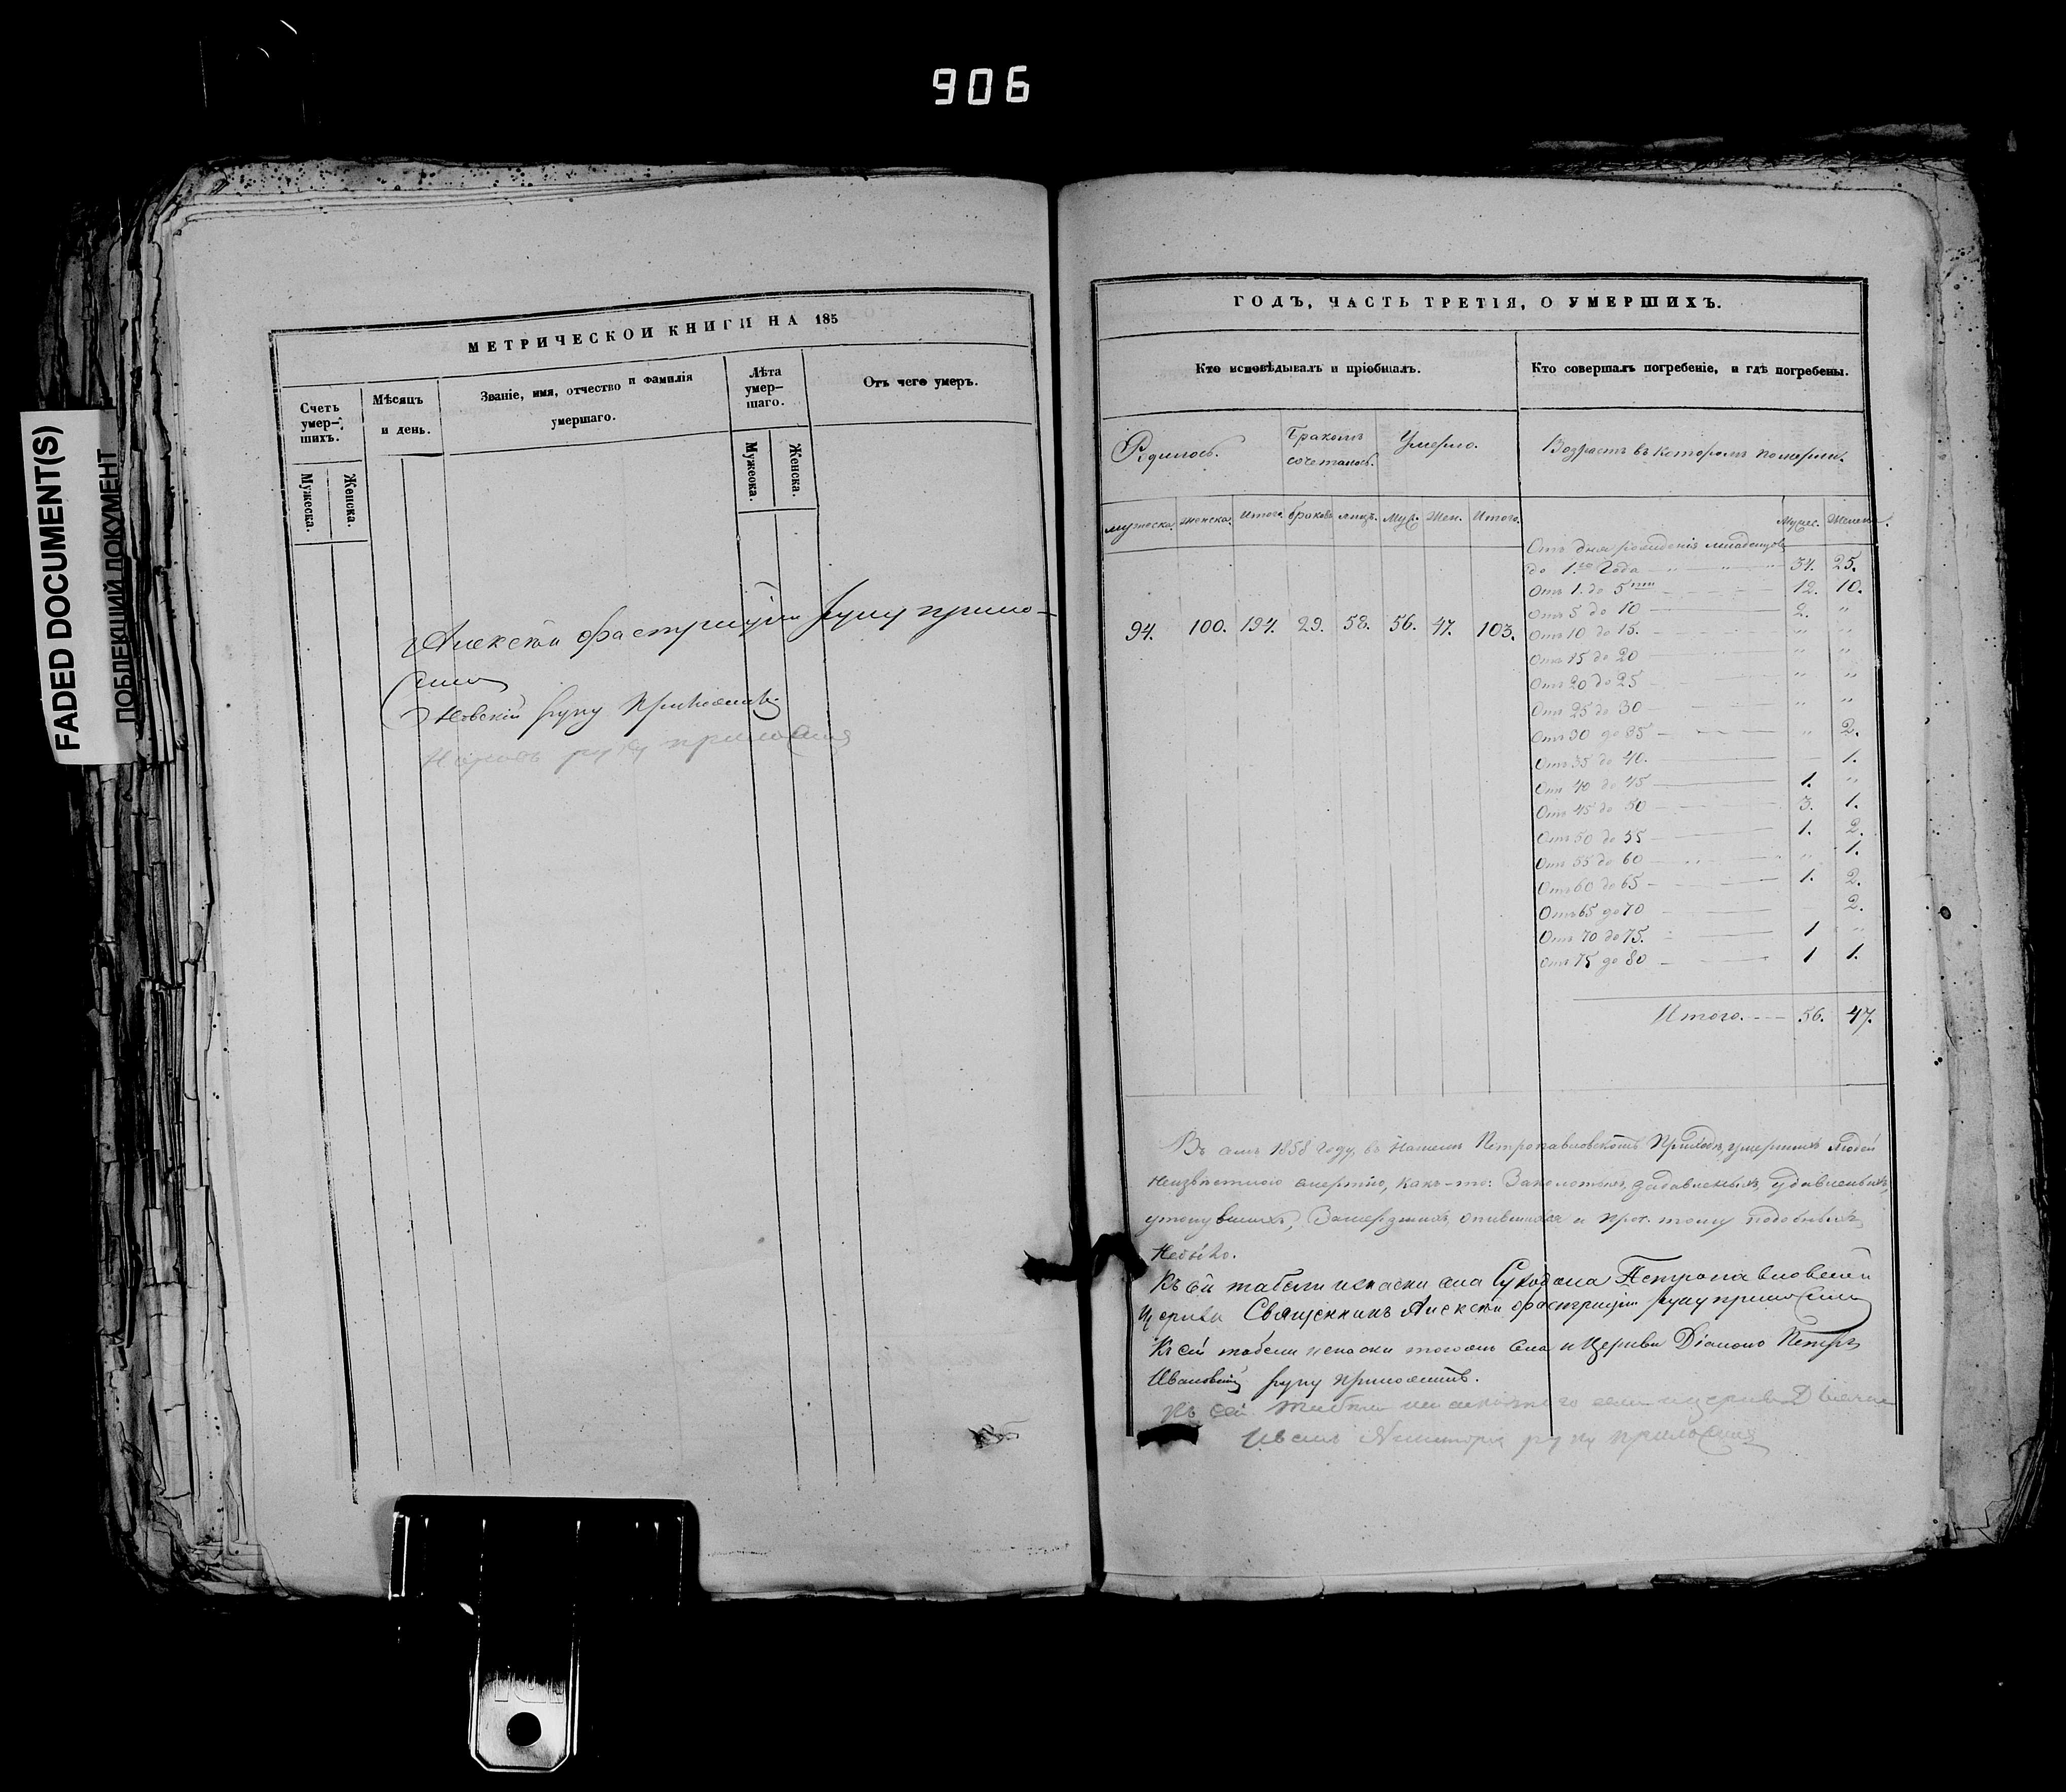 906
FADED DOCUMENT(S)
ПОБЛЕКШИЙ ДОКУМЕНТ
МЕТРИЧЕСКОИ КНИГИ НА 185
Счетъ умер-шихъ.
Мѣсяцъ и день.
Званіе, имя, отчество и фамилія умершаго.
Лѣта умер-шаго.
Отъ чего умеръ.
Мужеска.
Женска.
Мужеска.
Женска.
Алексѣй руку прило-
жилъ
руку приложилъ
руку приложилъ
ГОДЪ, ЧАСТЬ ТРЕТІЯ, О УМЕРШИХЪ.
Кто исповѣдывалъ и пріобщалъ.
Кто совершалъ погребеніе, и гдѣ погребены.
Родилось.
Бракомъ сочеталось.
Умерло.
Возрастъ въ которомъ померли.
мужеска. женска. Итого. браковъ лицъ. Муж. Жен. Итого.
Мужес. Женска.
94. 100. 194. 29. 58. 56. 47. 103.
Отъ дня рожденія младенцовъ
до 1.го Года 34. 25.
Отъ 1. до 5ти 12. 10.
Отъ 5 до 10 2. "
Отъ 10 до 15. " "
Отъ 15 до 20 " "
Отъ 20 до 25 " "
Отъ 25 до 30 " "
Отъ 30 до 35 " 2.
Отъ 35 до 40. 1.
Отъ 40 до 45 1. "
Отъ 45 до 50 3. 1.
Отъ 50 до 55 1. 2.
Отъ 55 до 60 " 1.
Отъ 60 до 65 1. 2.
Отъ 65 до 70 2.
Отъ 70 до 75. 1 "
Отъ 75 до 80 1 1.
Итого. 56. 47.
Въ семъ 1858 году, въ нашемъ Петропавловскомъ Приходѣ, умершихъ людей
неизвѣстною смертію, какъ-то: Заколотыхъ, задавленыхъ, удавленыхъ,
утонувшихъ, Замерзшихъ, опившихся и проч. тому подобныхъ,
небыло.
Къ сей табели села Петропавловской
Церкви Священникъ Алексѣй руку приложилъ
Къ сей табели тогожъ села и Церкви Діаконъ Петръ
Ивановскій руку приложилъ.
Къ сей села и церкви
Иванъ руку приложилъ